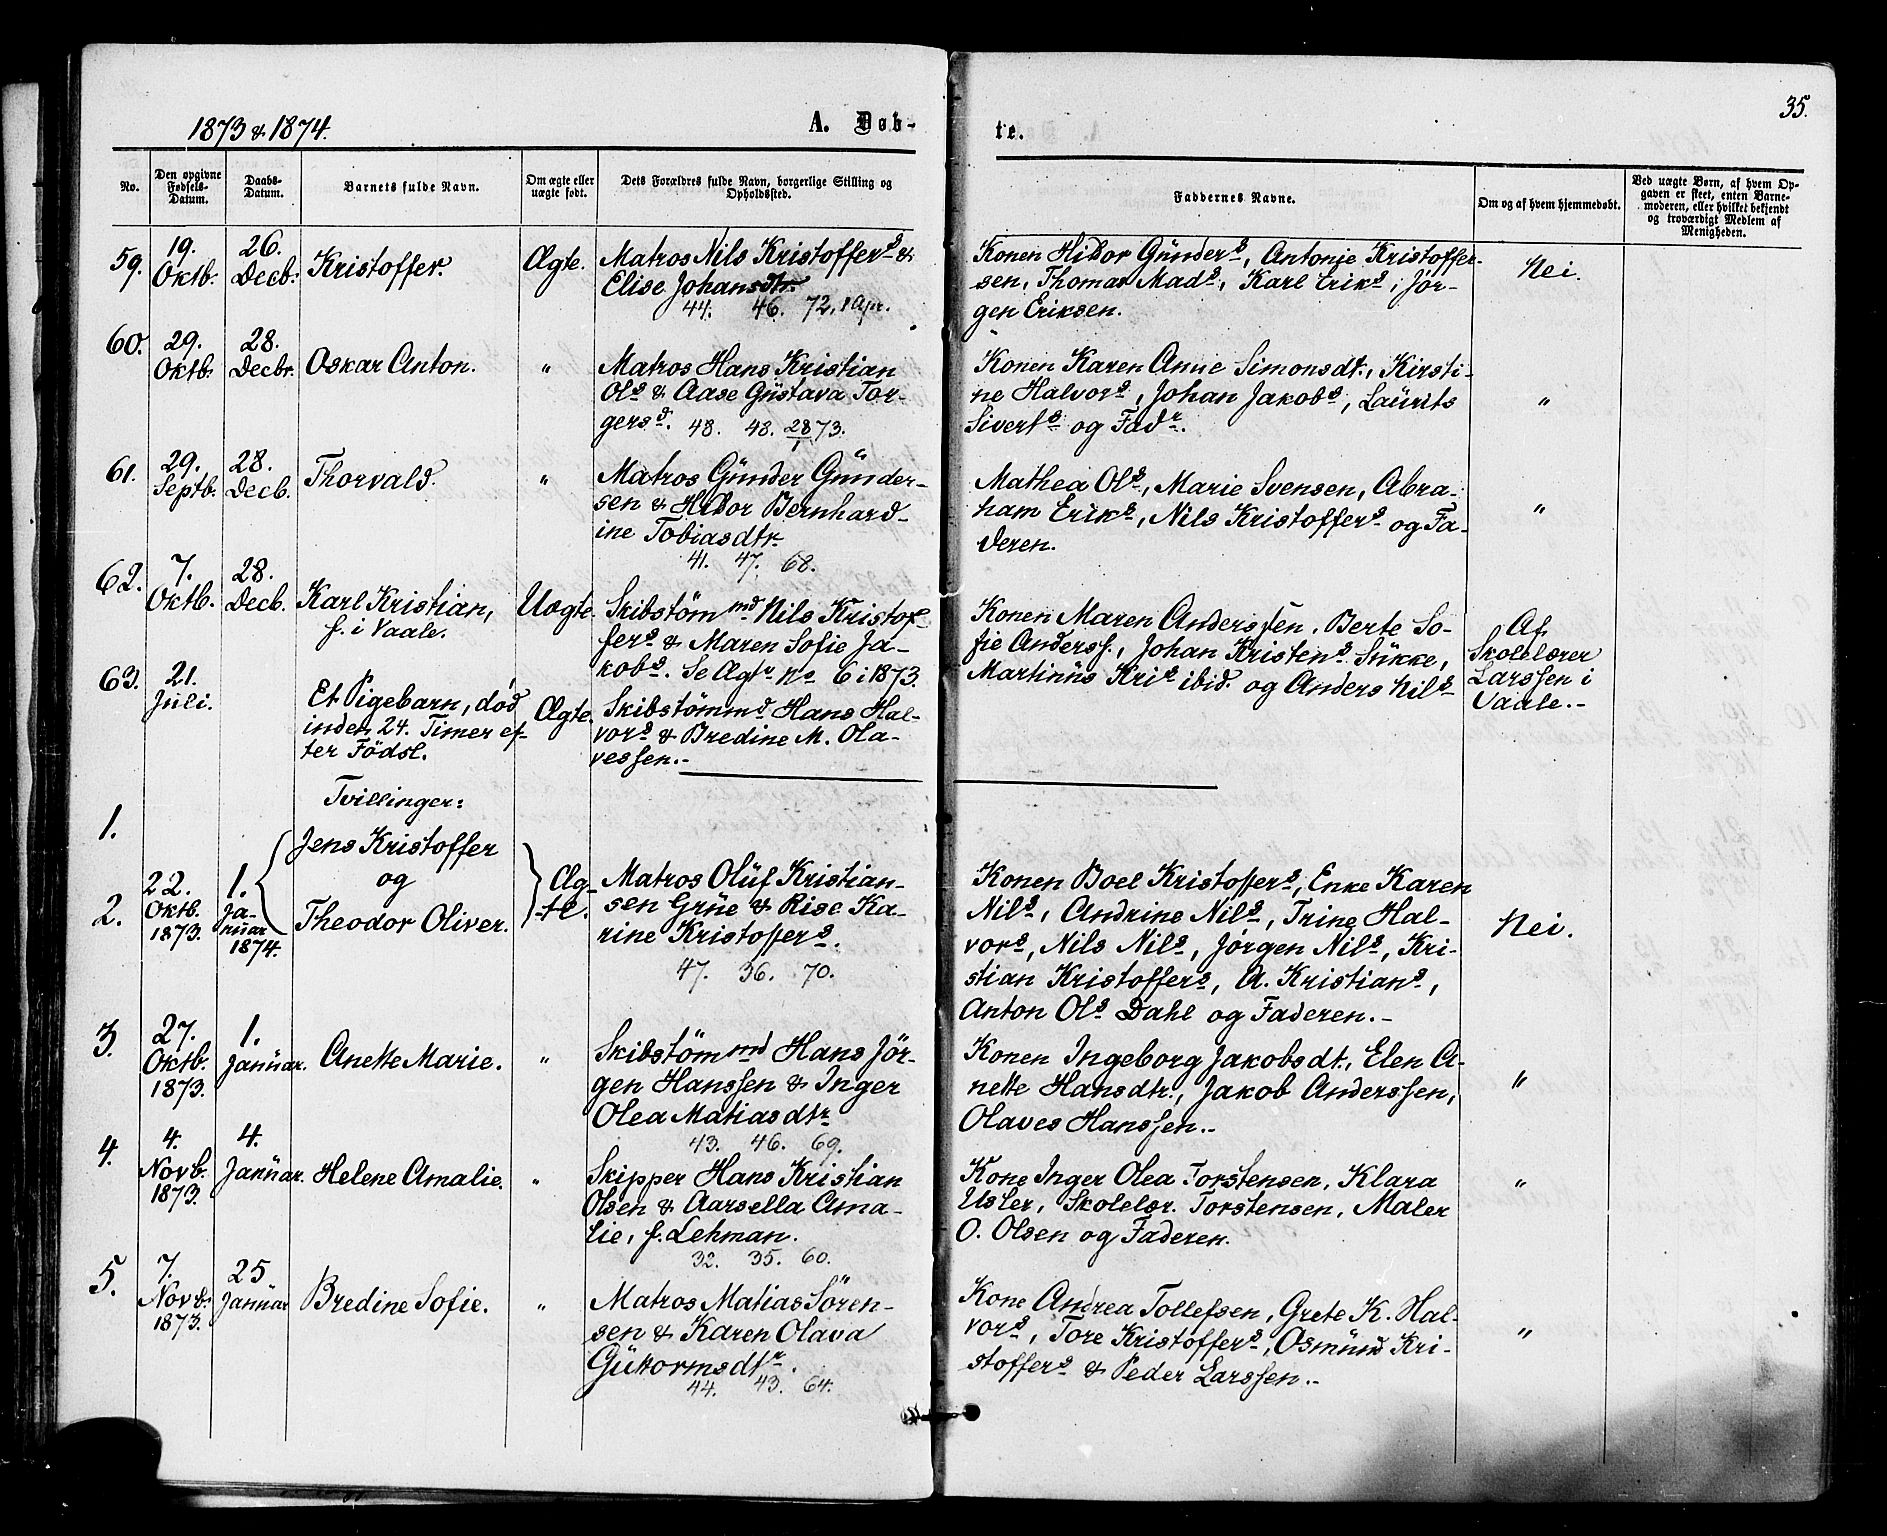 35.
1873 & 1874.
A. Døb-
te.
No.
Den opgivne Fødsels-Datum.
Daabs-Datum.
Barnets fulde Navn.
Om ægte eller uægte født.
Dets Forældres fulde Navn, borgerlige Stilling og Opholdssted.
Faddernes Navne.
Om og af hvem hjemmedøbt.
Ved uægte Børn, af hvem Opgaven er skeet, enten Barnemoderen, eller hvilket bekjendt og troværdigt Medlem af Menigheden.
59. 19. Oktb. 26. Decb. Kristoffer. Ægte.
Matros Nils Kristoffers &
Elise Johansdtr.
44. 46. 72, 1 Apr.
Konen Hibor Günders, Antonie Kristoffer-
sen, Thomas Mads, Karl Eriks, Jør-
gen Eriksen.
Nei.
60. 29. Oktb. 28. Decbr. Oskar Anton. "
Matros Hans Kristian
Ols & Aase Güstava Tor-
gersd. 48. 48. 28/1 73.
Konen Karen Anne Simonsdt., Kirsti-
ne Halvors, Johan Jakobs, Laürits
Siverts og Fadr.
"
61. 29. Septb. 28. Decb. Thorvald. "
Matros Günder Günder-
sen & Hibor Bernhard-
ine Tobiasdtr.
41. 47. 68.
Mathea Ols, Marie Svensen, Abra-
ham Eriks, Nils Kristoffers og Fa-
deren.
"
62. 7. Oktb. 28. Decb. Karl Kristian,
f. i Vaale.
Uægte.
Skibstømmd Nils Kristof-
fers & Maren Sofie Ja-
kobs. Se Ægtv. No 6 i 1873.
Konen Maren Anderssen, Berte So-
fie Anderss., Johan Kristens. Sükke,
Martinüs Kris ibid. og Anders Nils
Af
Skolelærer
Larssen i
Vaale.-
63. 21. Juli.
Et Pigebarn, død
inden 24. Timer ef-
ter Födsl.
Ægte.
Skibstömmd Hans Hal-
vors & Bredine M. Ola-
vessen.-
Tvillinger:
1. Jens Kristoffer
og
2. Theodor Oliver.
22. Oktb. 1873.
1. Januar 1874.
Æg-
te.
Matros Olüf Kristian-
sen Grüe & Rise Ka-
rine Kristoffers.
47. 36. 70.
Konen Boel Kristoffers, Enke Karen
Nils, Andrine Nils, Trine Hal-
vors, Nils Nils, Jørgen Nils, Kri-
stian Kristoffers, A. Kristians,
Anton Ols Dahl og Faderen.-
Nei.
3. 27. Oktb. 1873. 1. Janüar. Anette Marie. "
Skibstömmd Hans Jør-
gen Hanssen & Inger
Olea Matiasdtr
43. 46. 69.
Konen Ingeborg Jakobsdt., Elen A-
nette Hansdtr., Jakob Anderssen,
Olaves Hanssen.-
"
4. 4. Novb. 1873. 4. Janüar. Helene Amalie. "
Skipper Hans Kristian
Olsen & Aarsella Ama-
lie, f. Lehman.
32. 35. 60.
Kone Inger Olea Torstensen, Klara
Usler, Skolelær. Torstensen, Maler
O. Olsen og Faderen.
"
5. 7. Novb. 1873. 25 Janüar Bredine Sofie. "
Matros Matias Sören-
sen & Karen Olava
Güttormsdtr.
44. 43. 64.
Kone Andrea Tollefsen, Grete K. Hal-
vors, Tore Kristoffers, Osmünd Kri-
stoffers & Peder Larssen.-
"